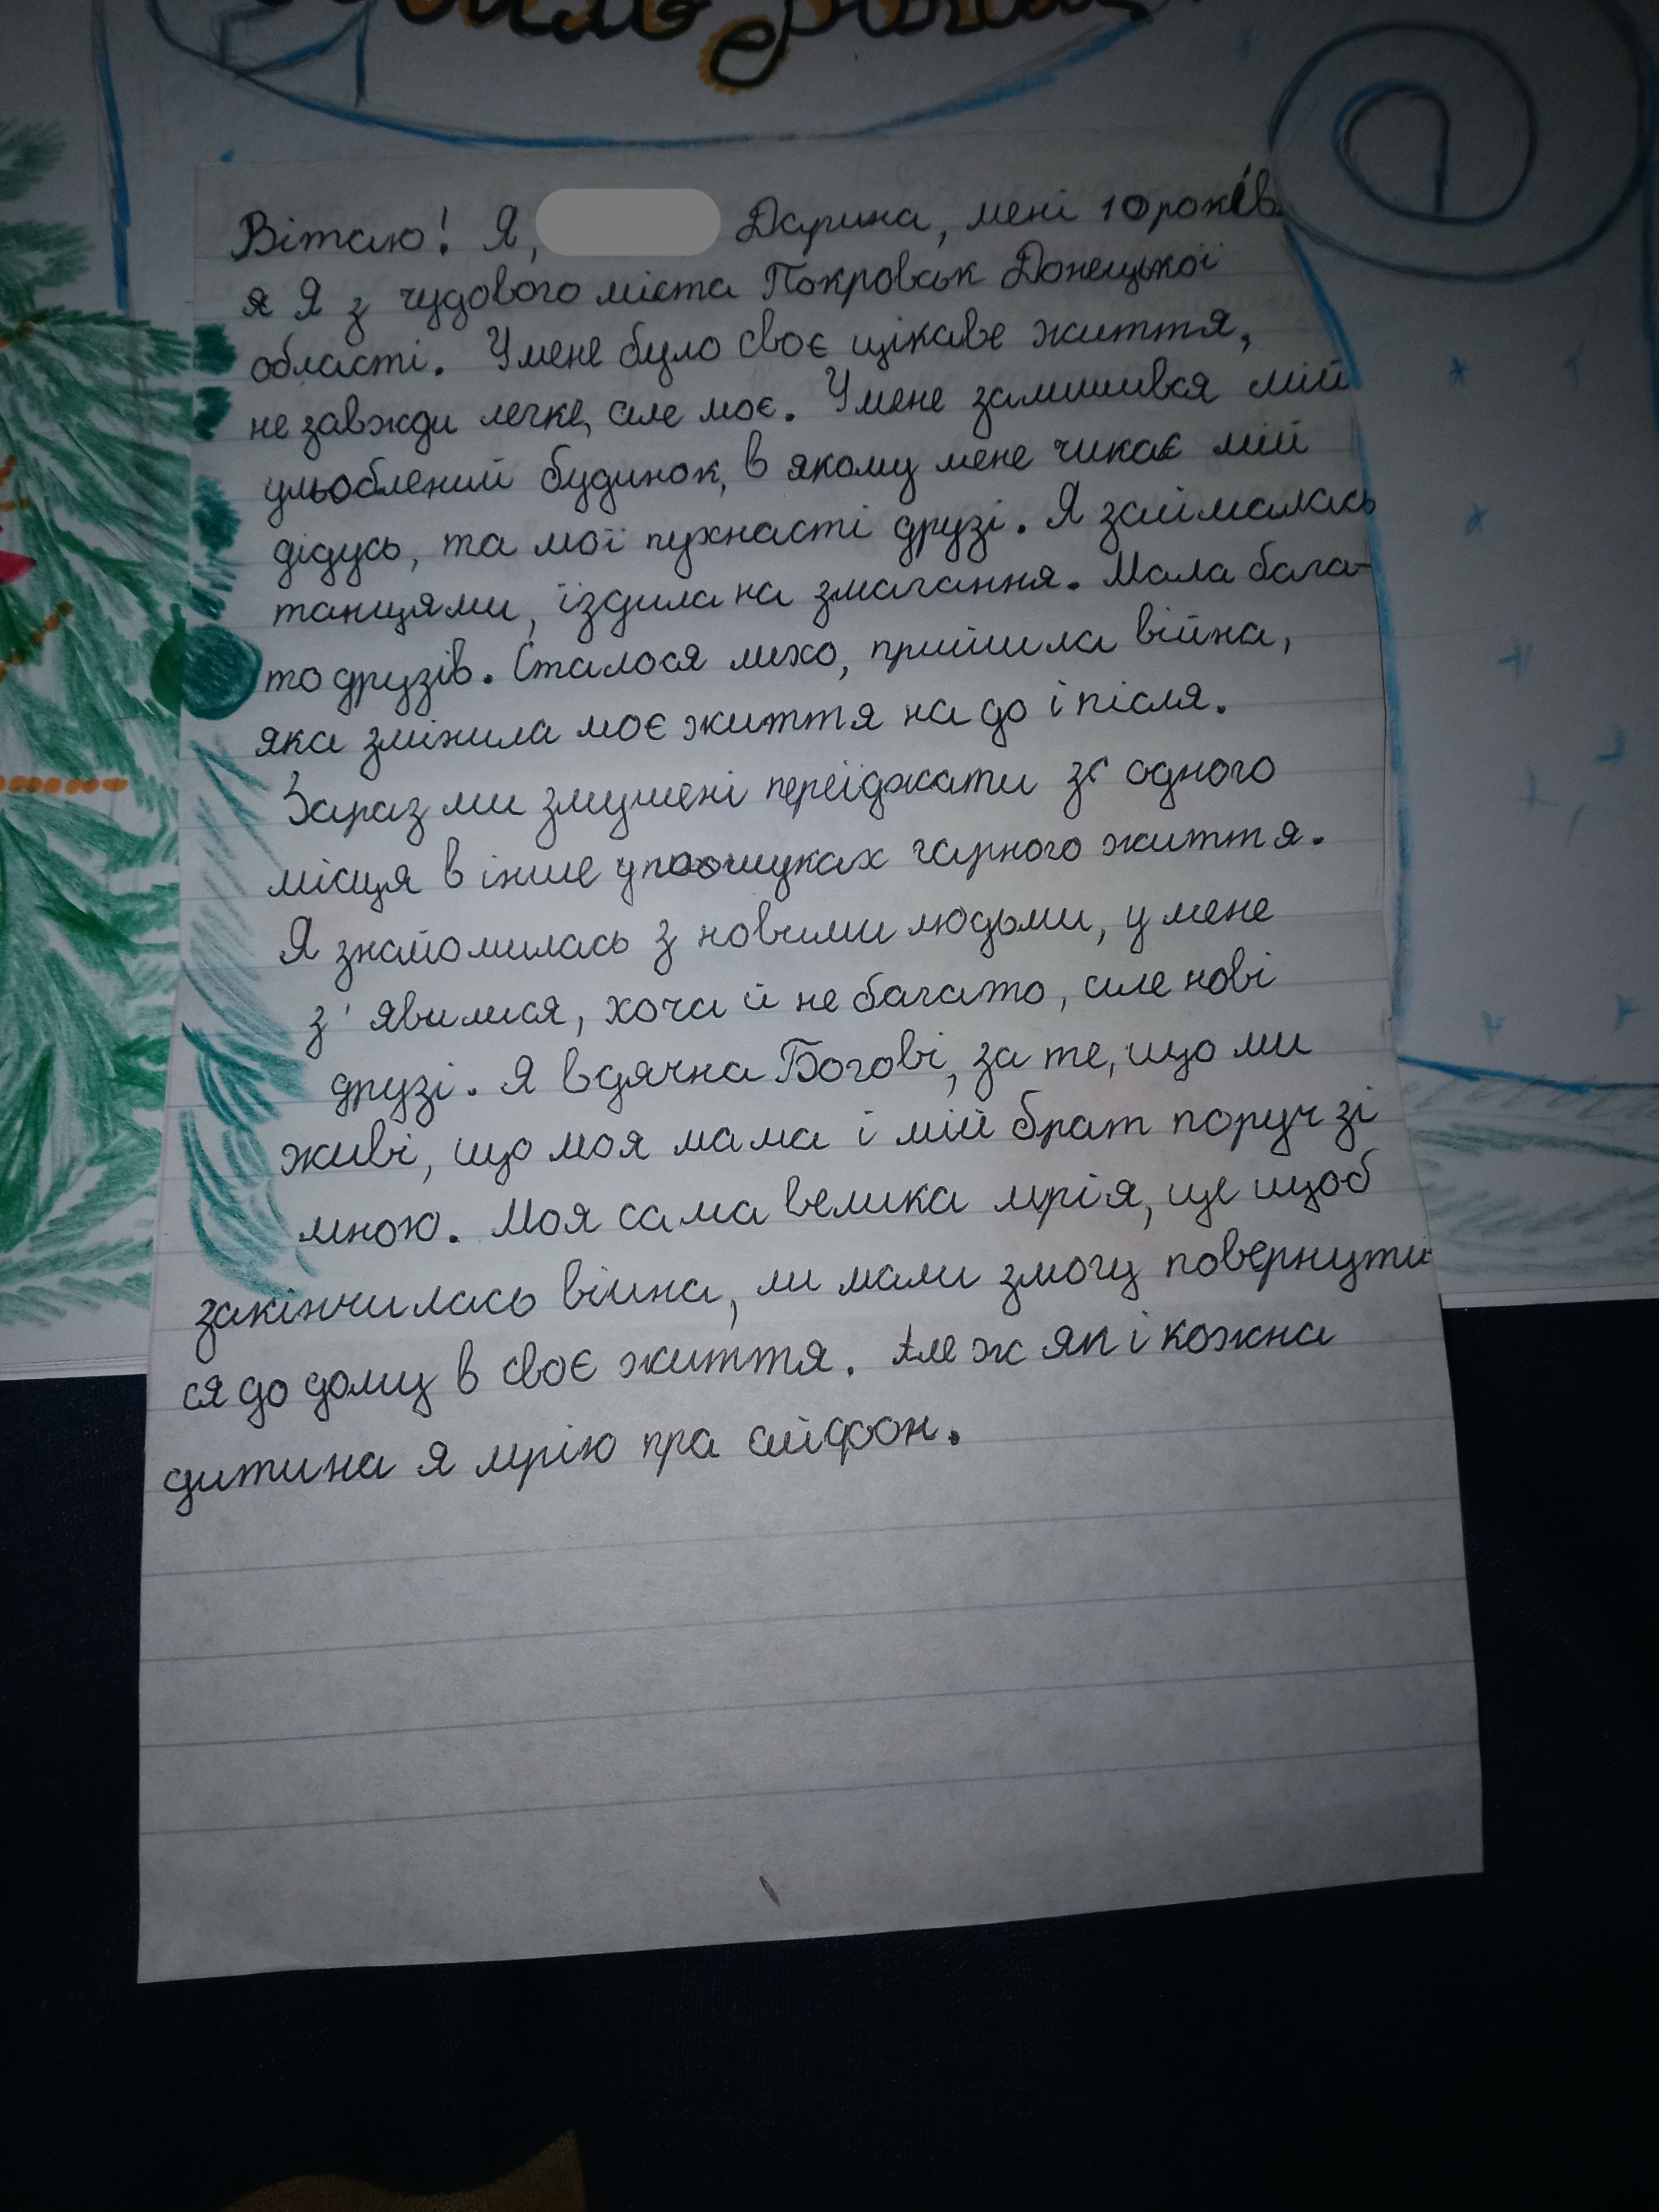 Вітаю! Я, Дарина, мені 10 років
я Я з чудового міста Покровськ Донецької
області. У мене було своє цікаве життя,
не завжди легке, але моє. У мене залишився мій
ульоблений будинок, в якому мене чикає мій
дідусь, та мої пухнасті друзі. Я займалась
танцями, їздила на змагання. Мала бага-
то друзів. Сталося лихо, прийшла війна,
яка змінила моє життя на до і після.
Зараз ми змушені переїджати зі одного
місця в інше у пошуках гарного життя.
Я знайомилась з новими людьми, у мене
з'явилися, хоча й не багато, але нові
друзі. Я вдячна Богові, за те, що ми
живі, що моя мама і мій брат поруч зі
мною. Моя сама велика мрія, це щоб
закінчилась війна, ми мали змогу повернути
ся до дому в своє життя. Але ж як і кожна
дитина я мрію про айфон.